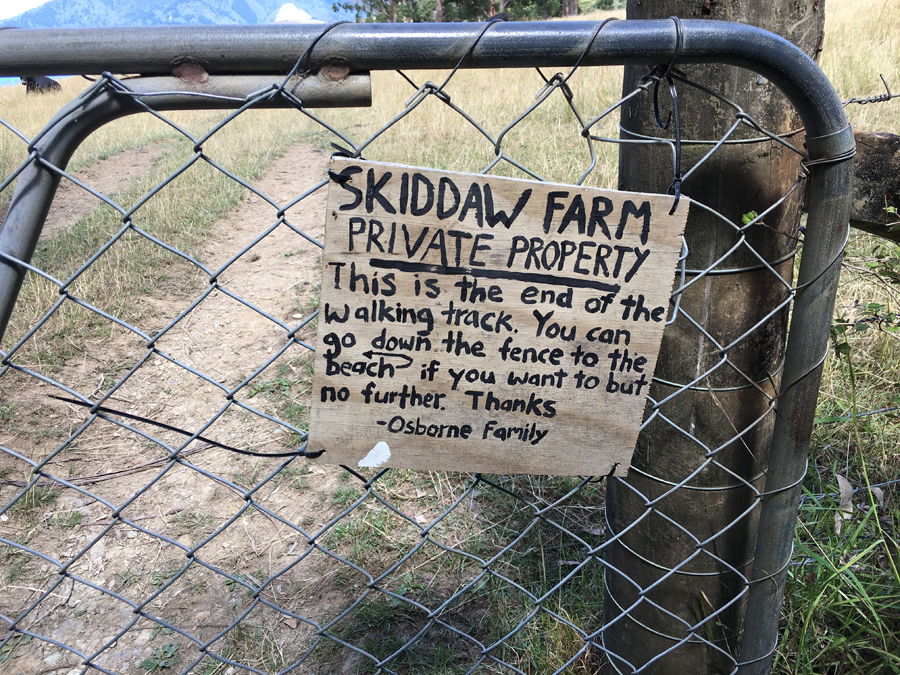 SKIDDAW FARM
PRIVATE PROPERTY
This is the end of the
walking track. You can
go down the fence to the
beach if you want to but
no further. Thanks
-Osborne Family